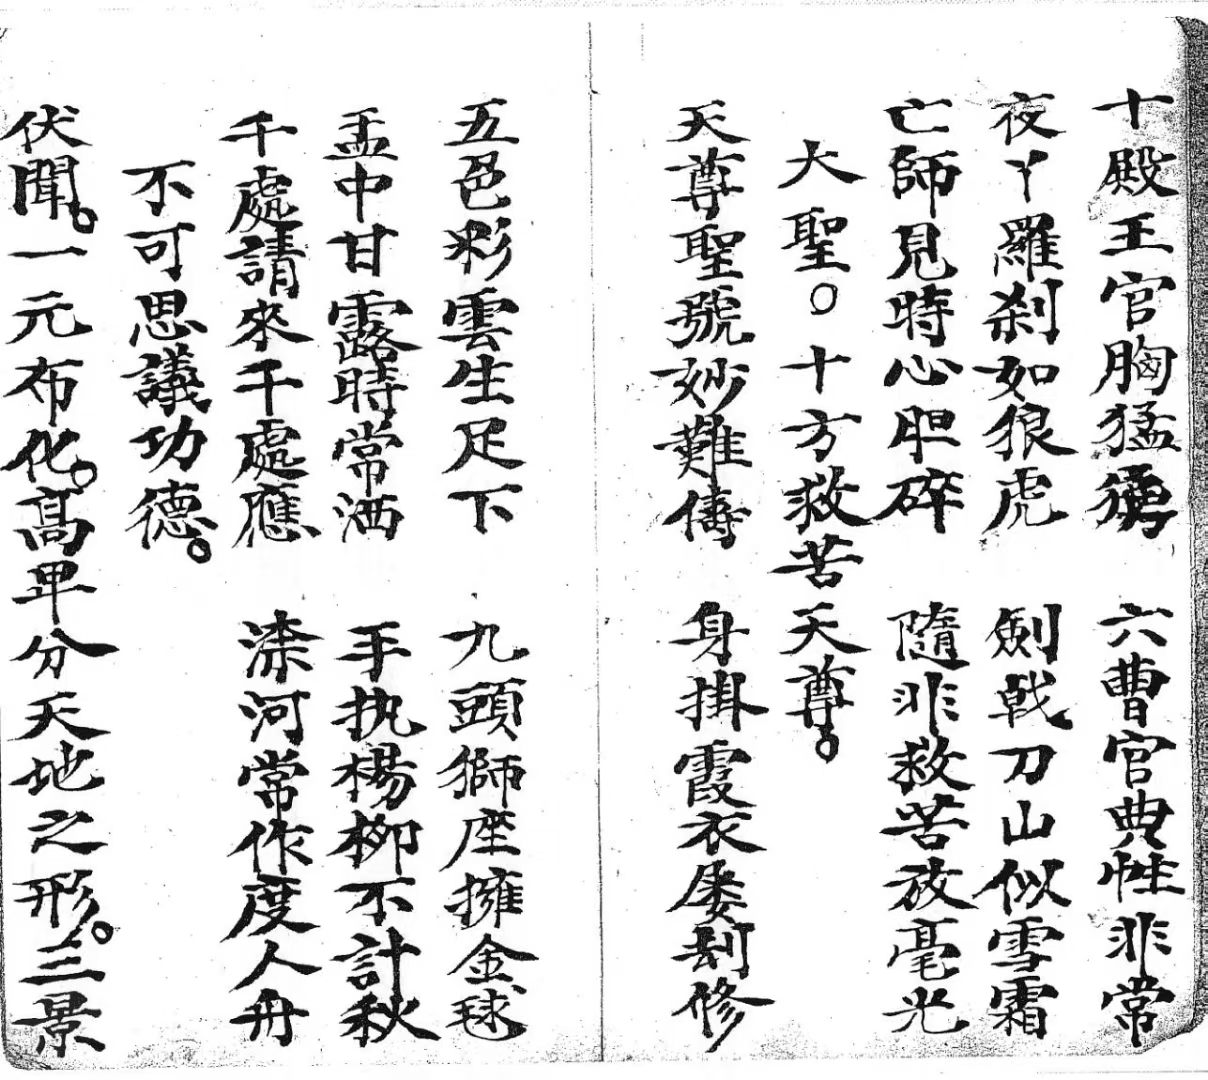 十殿王官胸猛勇 六曹官典性非常
夜丫羅刹如狼虎 劍戟刀山似雪霜
亡師見時心胆碎 隨非救苦放毫光
大聖。十方救苦天尊。
天尊聖號妙難儔 身掛霞衣屡刼修
五色彩雲生足下 九頭獅座擁金毬
盂中甘露時常洒 手执楊柳不計秋
千處請來千處應 㴃河常作度人舟
不可思議功德。
伏聞。一元布化。髙𤰞分天地之形。三景